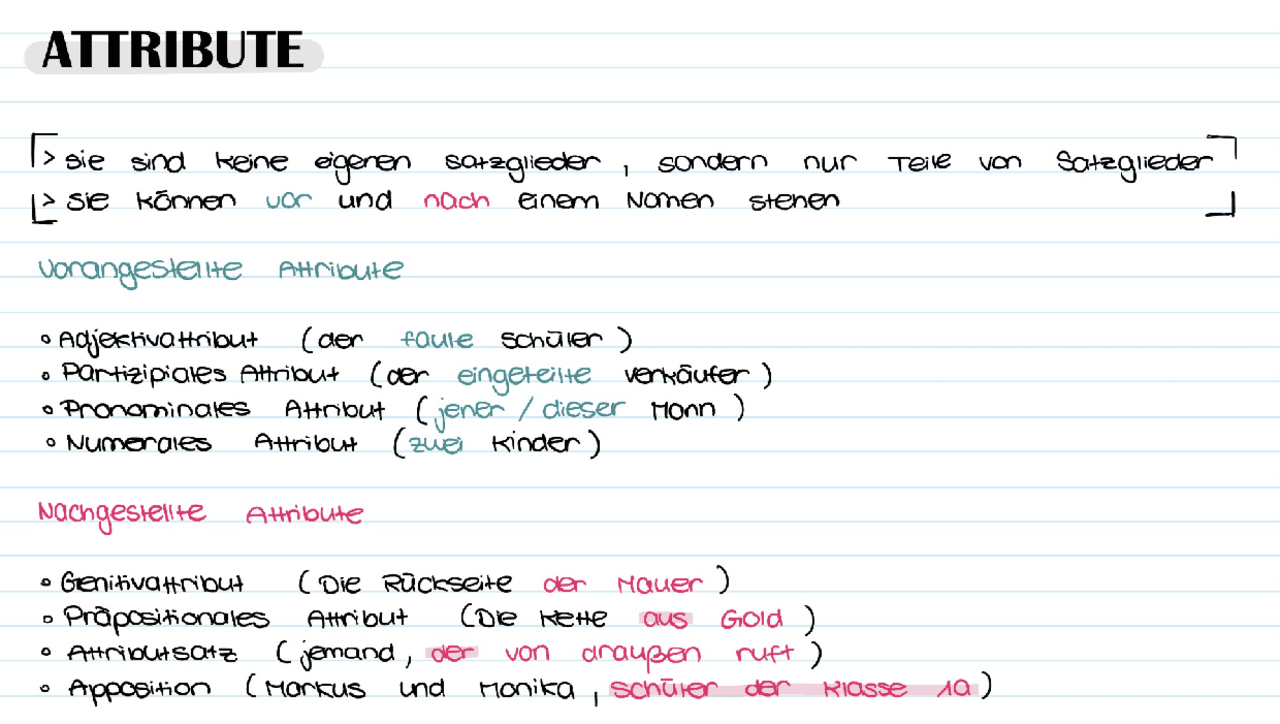 ATTRIBUTE
> sie sind keine eigenen Satzglieder, sondern nur Teile von Satzglieder
> sie können vor und nach einem Nomen stehen
Vorangestellte Attribute
• Adjektivattribut (der faule Schüler)
• Partizipiales Attribut (der eingeteilte Verkäufer)
• Pronominales Attribut (jener / dieser Mann)
• Numerales Attribut (zwei Kinder)
Nachgestellte Attribute
• Genitivattribut (Die Rückseite der Mauer)
• Präpositionales Attribut (Die Kette aus Gold)
• Attributsatz (jemand, der von draußen ruft)
• Apposition (Markus und Monika, Schüler der Klasse 1a)